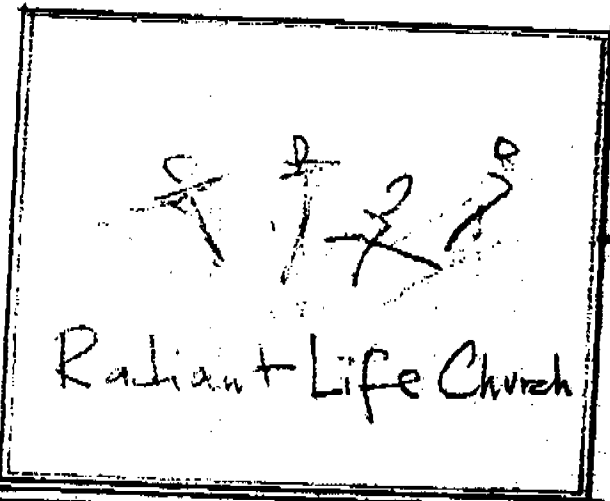 Radiant Life Church